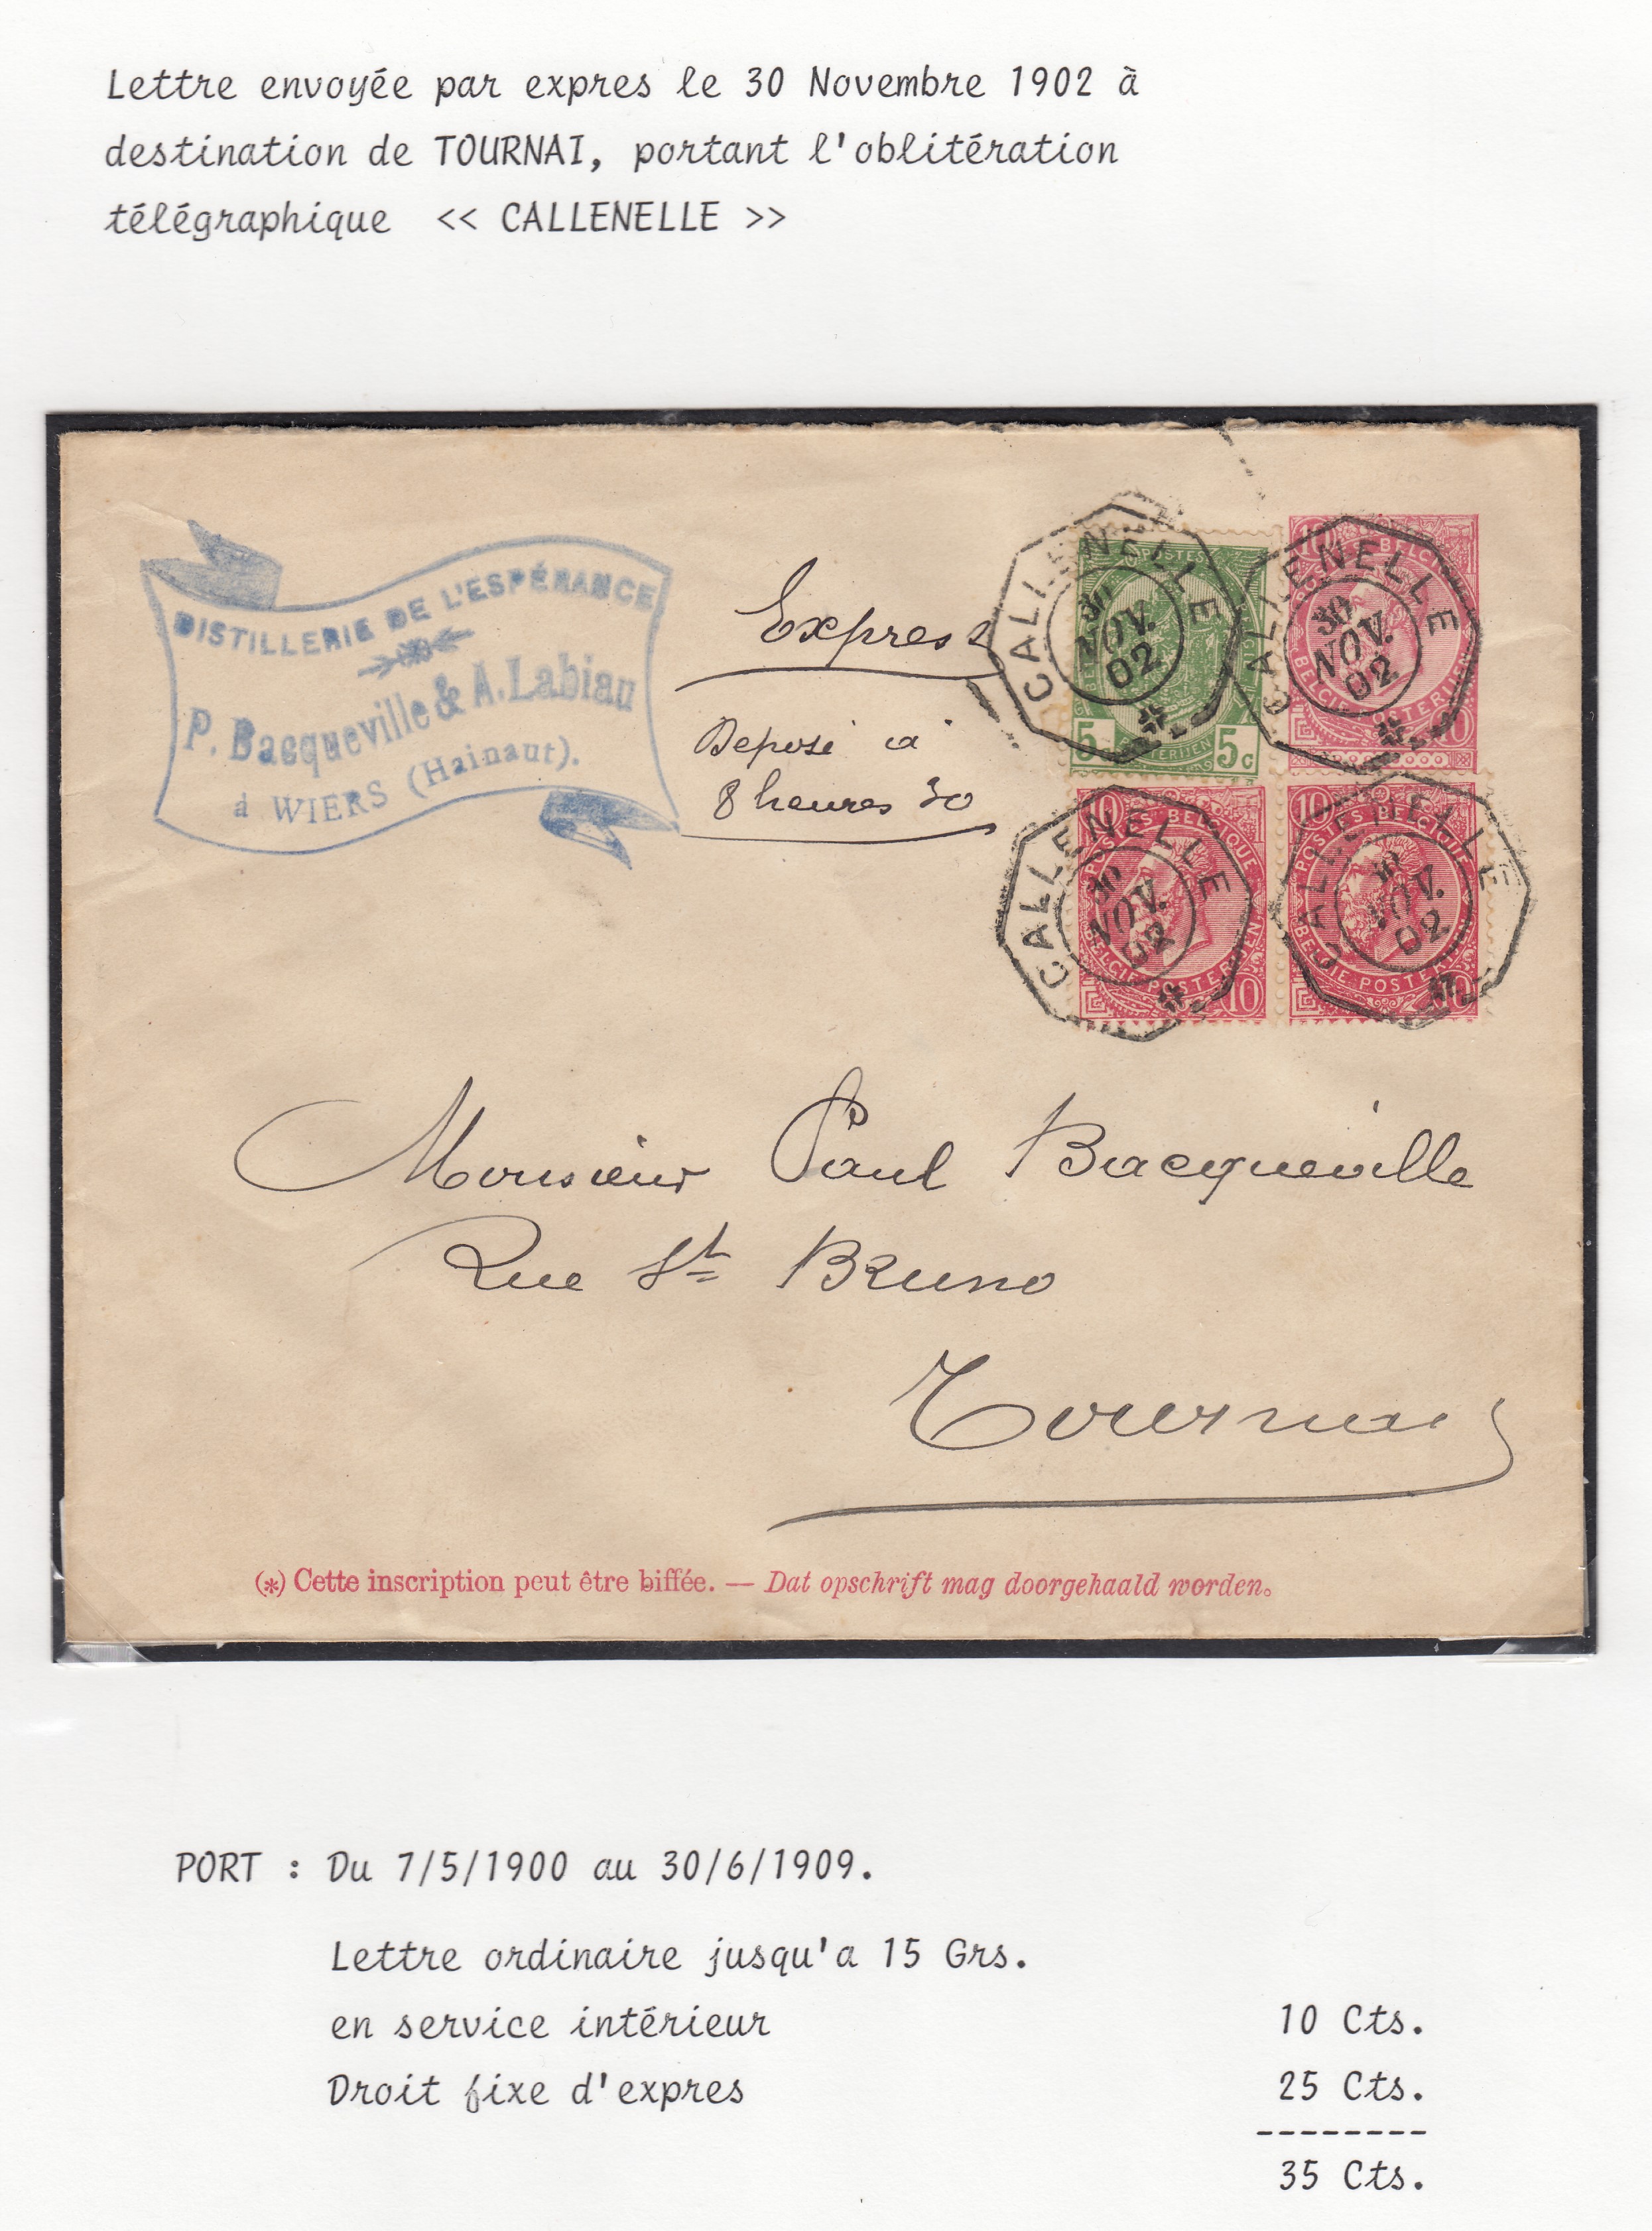 Lettre envoyée par expres le 30 Novembre 1902 à
destination de TOURNAI, portant l'oblitération
télégraphique << CALLENELLE >>
DISTILLERIE DE L'ESPÉRANCE
P. Bacqueville & A. Labiau
à WIERS (Hainaut).
Expres
Déposé à
8 heures 30
CALLENELLE
30
NOV.
02
POSTES
5 5c
CALLENELLE
30
NOV.
02
10
BELGIË POSTERIJEN
CALLENELLE
30
NOV.
02
10
POSTES BELGIQUE
BELGIË POSTERIJEN
10
CALLENELLE
30
NOV.
02
10
POSTES BELGIQUE
BELGIË POSTERIJEN
10
Monsieur Paul Bacqueville
Rue St Bruno
Tournai
(*) Cette inscription peut être biffée. — Dat opschrift mag doorgehaald worden.
PORT : Du 7/5/1900 au 30/6/1909.
Lettre ordinaire jusqu'a 15 Grs.
en service intérieur 10 Cts.
Droit fixe d'expres 25 Cts.
--------
35 Cts.